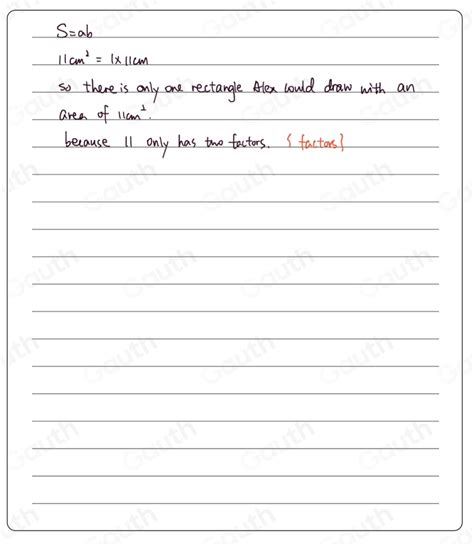 S=ab
11cm² = 1×11cm
so there is only one rectangle Alex could draw with an
area of 11cm².
because 11 only has two factors. {factors}